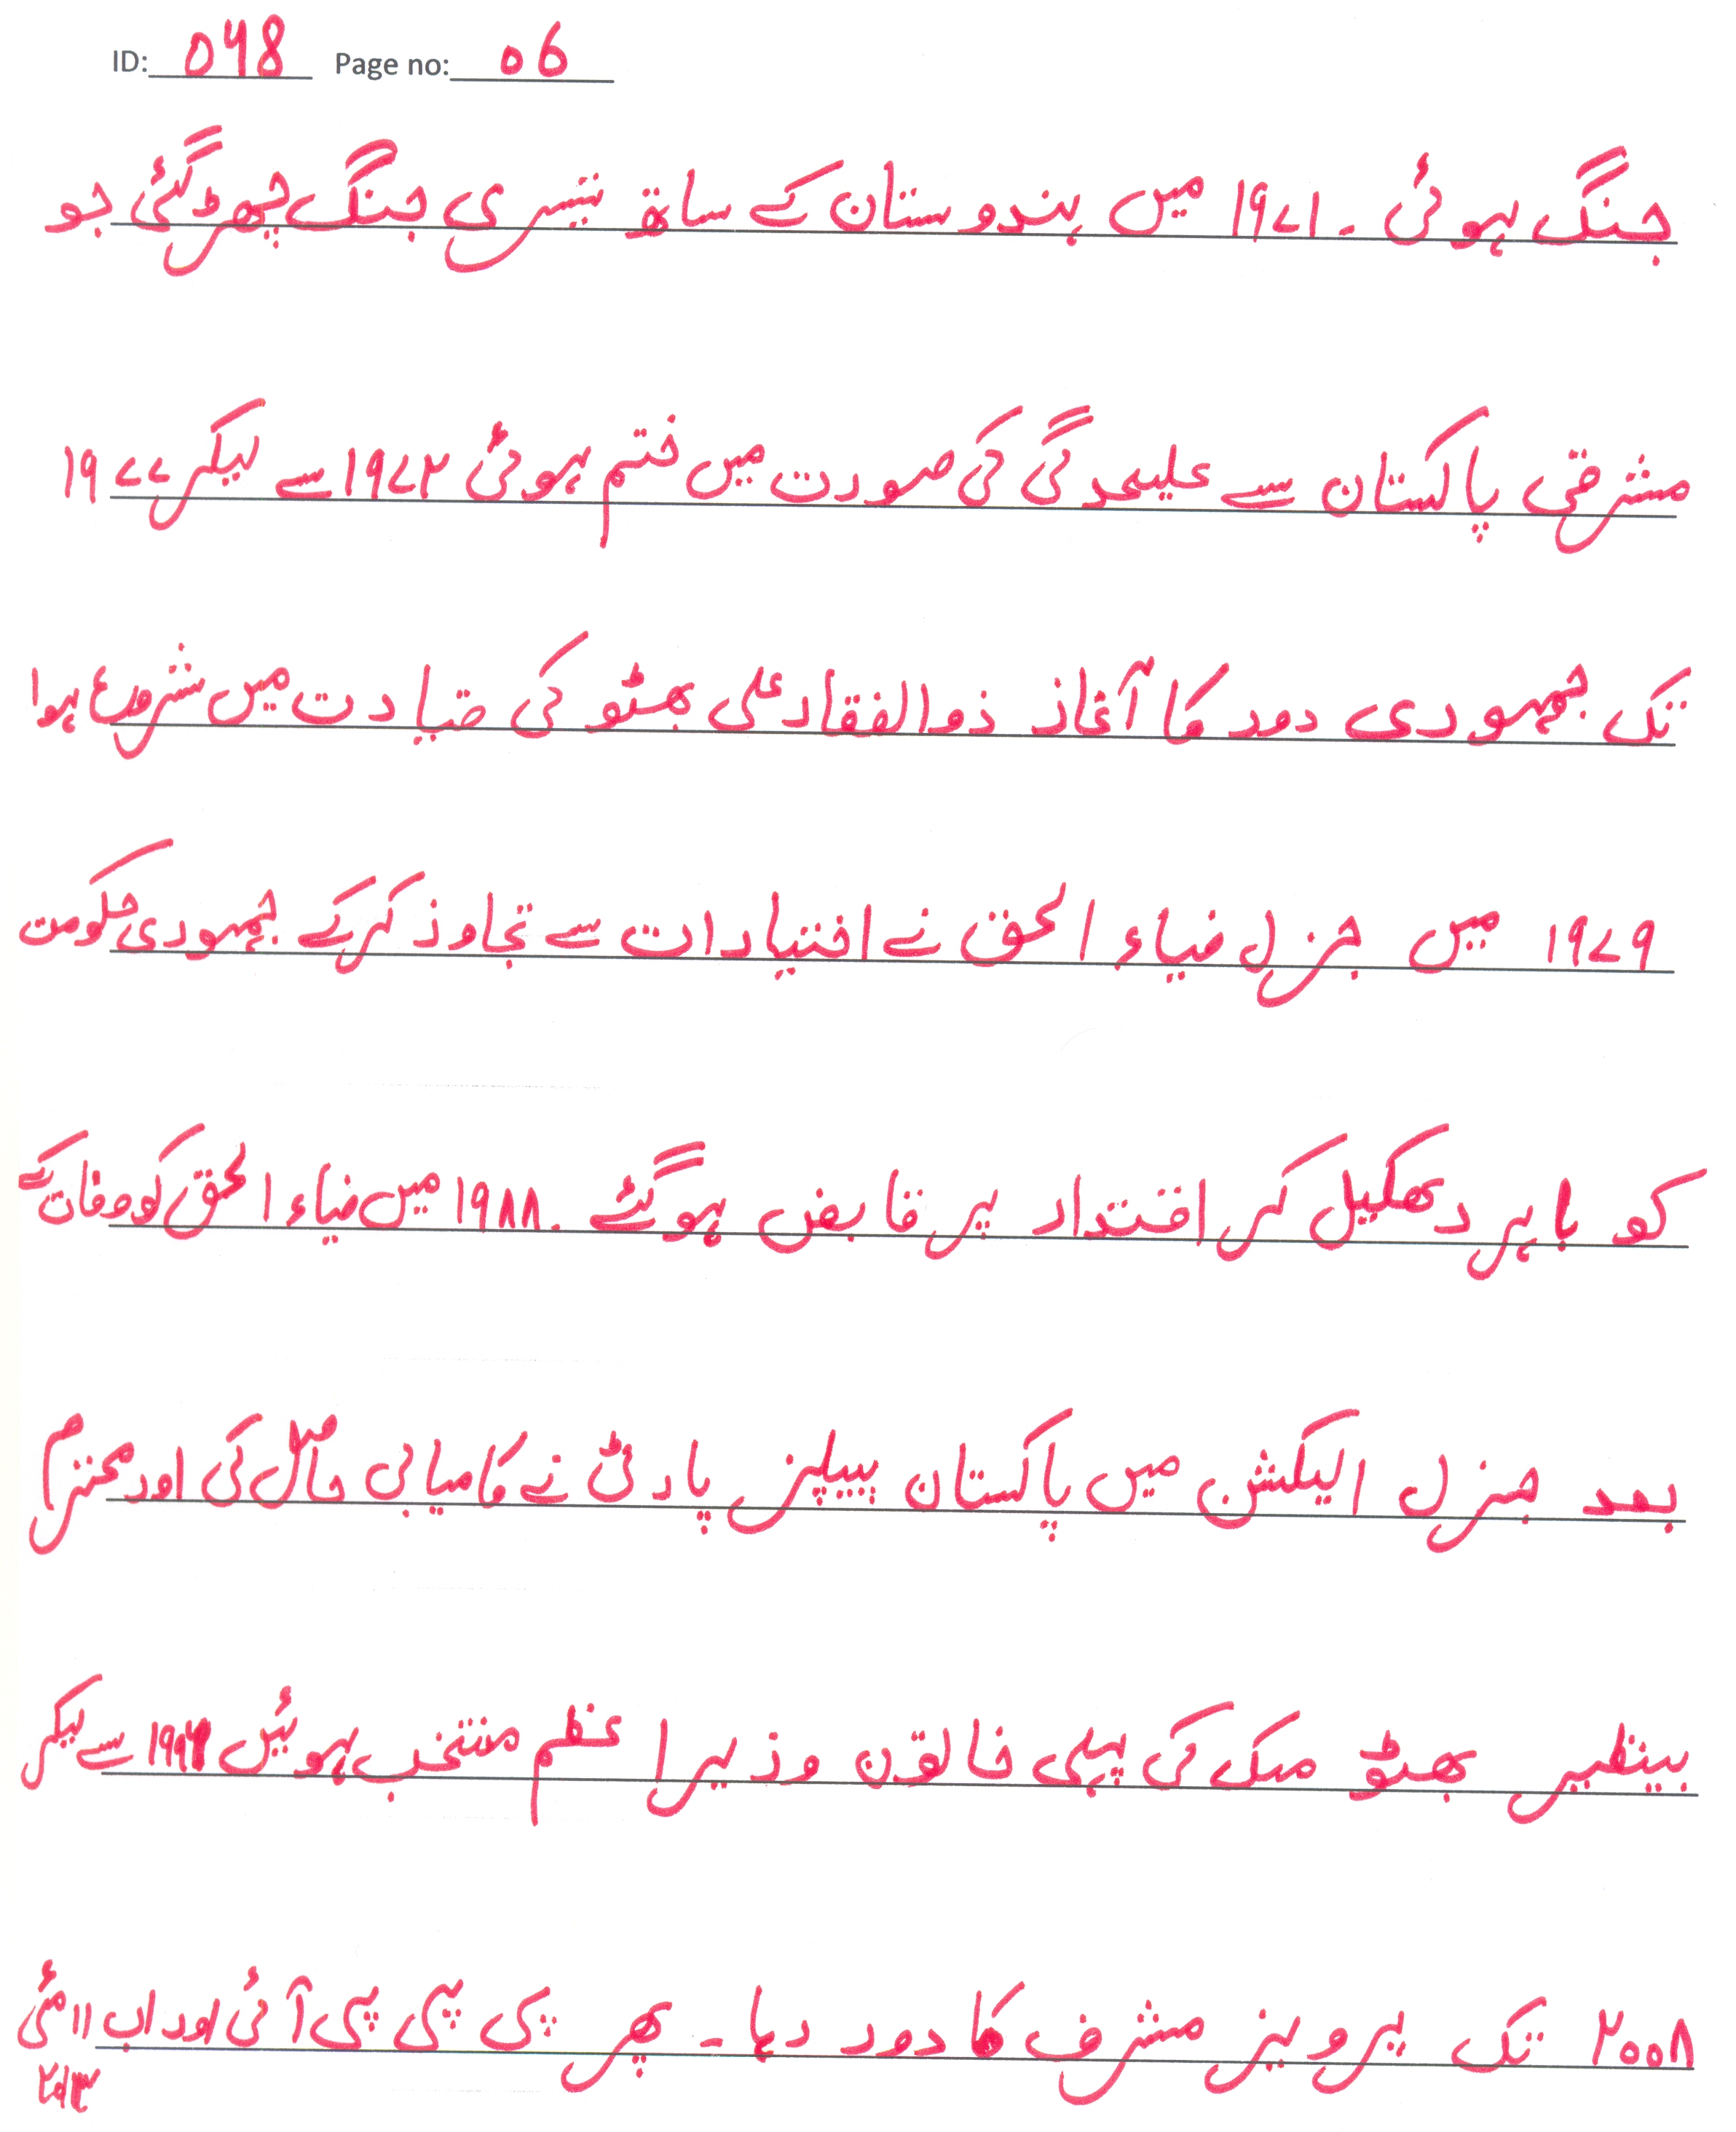 ID: 048 Page no: 06
جنگ ہوئی ۔ ۱۹۷۱ میں ہندوستان کے ساتھ تیسری جنگ چھڑ گئی جو
مشرقی پاکستان سے علیحدگی کی صورت میں ختم ہوئی ۱۹۷۲ سے لیکر ۱۹۷۷
تک جمہوری دور کا آغاز ذوالفقار علی بھٹو کی قیادت میں شروع ہوا
۱۹۷۹ میں جنرل ضیاء الحق نے اختیارات سے تجاوز کرکے جمہوری حکومت
کو باہر دھکیل کر اقتدار پر قابض ہوگئے ۔ ۱۹۸۸ میں ضیاء الحق کو وفات کے
بعد جنرل الیکشن میں پاکستان پیپلز پارٹی نے کامیابی حاصل کی اور محترم
بینظیر بھٹو ملک کی پہلی خاتون وزیراعظم منتخب ہوئیں سے لیکر
۲۰۰۸ تک پرویز مشرف کا دور رہا ۔ پھر پی پی پی آئی اور اب ۱۱ مئی
۲۰۱۳